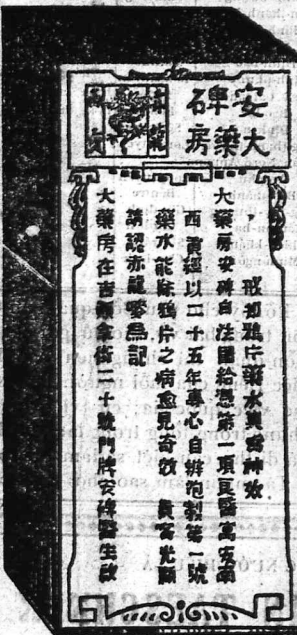 安碑
大藥房
赤龍
為記
戒却鴉片藥水其實神效
大藥房安碑自法國給憑第一項良醫寓安南
西貢經以二十五年專心自辦泡制第一號
藥水能除鴉片之病愈見奇效 貴客光顧
請認赤龍嘜為記
大藥房在西貢 拿街二十號門牌安碑醫生啟